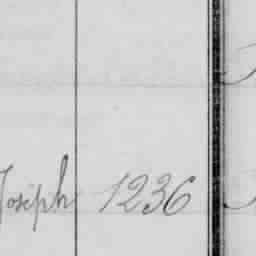 Joseph 1236